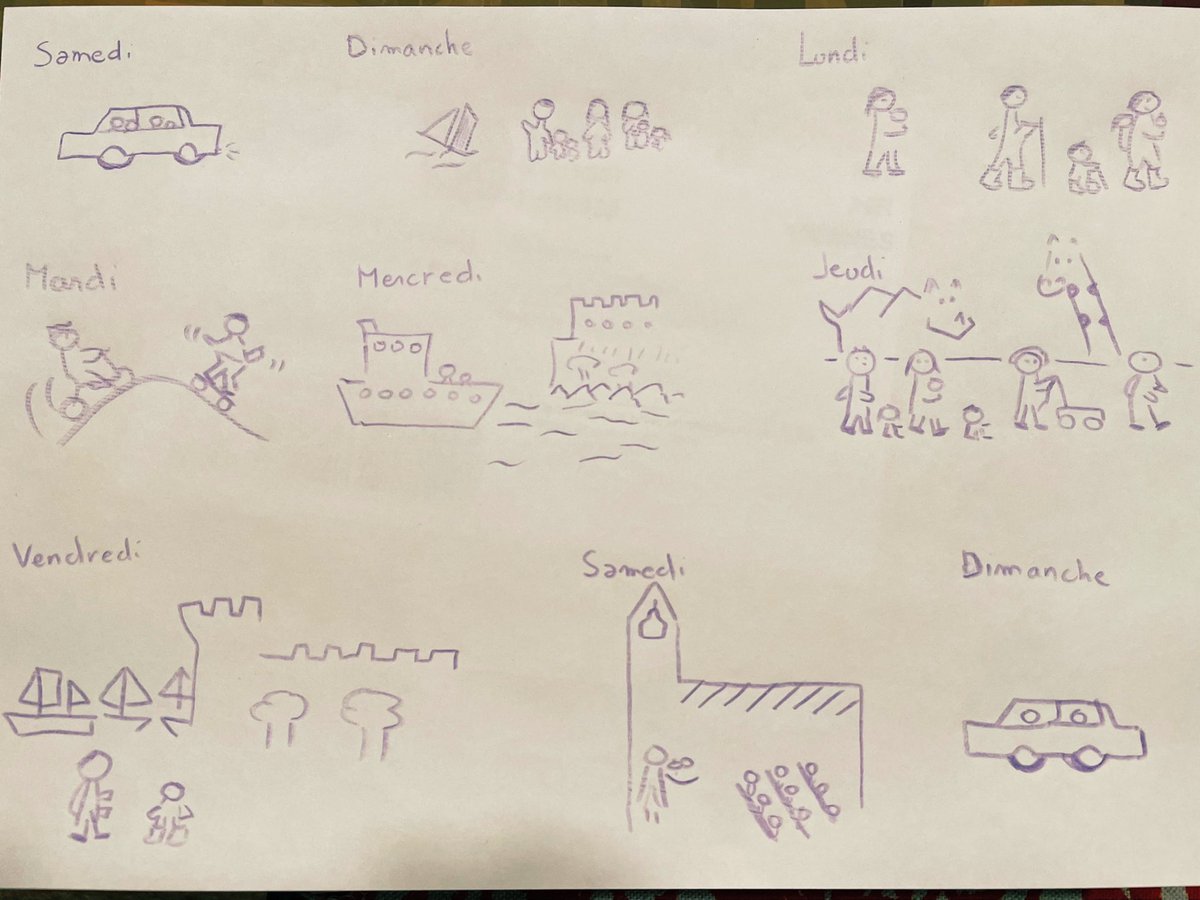 Samedi
Dimanche
Lundi
Mardi
Mercredi
Jeudi
Vendredi
Samedi
Dimanche